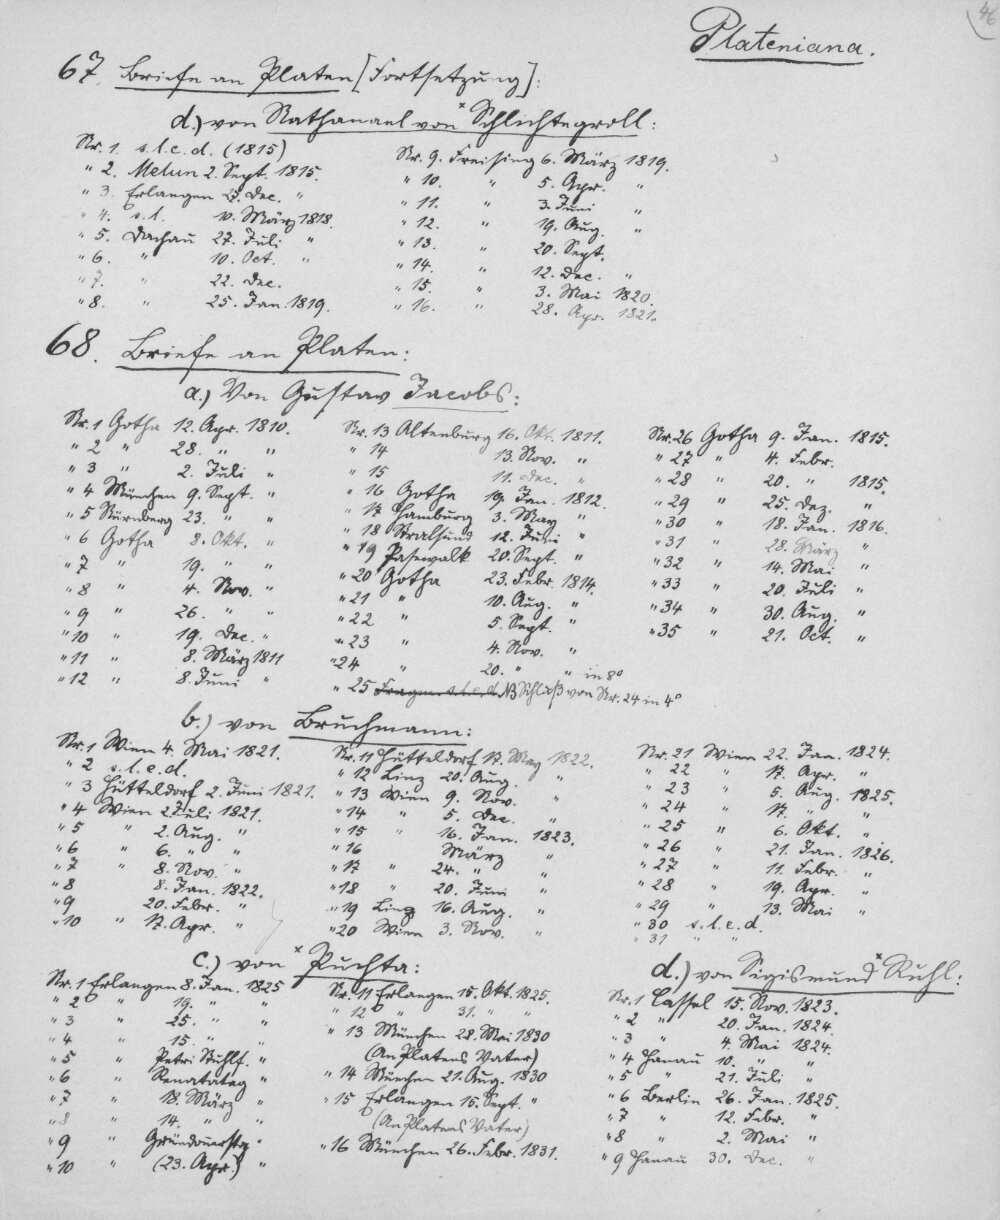 46
Plateniana.
67. Briefe an Platen [Fortsetzung]:
d.) von Nathanael von Schlichtegroll:
Nr. 1. s.l.e.d. (1815)
" 2. Melun 2. Sept. 1815.
" 3. Erlangen 23. Dec. "
" 4. s.l. 10. März 1818.
" 5. Dachau 27. Juli "
" 6. " 10. Oct. "
" 7. " 22. Dec.
" 8. " 25. Jan. 1819.
Nr. 9. Freising 6. März 1819.
" 10. " 5. Apr. "
" 11. " 3. Juni "
" 12. " 19. Aug. "
" 13. " 20. Sept.
" 14. " 12. Dec. "
" 15. " 3. Mai 1820.
" 16. " 28. Apr. 1821.
68. Briefe an Platen:
a.) Von Gustav Jacobs:
Nr. 1 Gotha 12. Apr. 1810.
" 2 " 28. " "
" 3 " 2. Juli "
" 4 München 9. Sept. "
" 5 Nürnberg 23. " "
" 6 Gotha 8. Okt. "
" 7 " 19. " "
" 8 " 4. Nov. "
" 9 " 26. " "
" 10 " 19. Dec. "
" 11 " 8. März 1811
" 12 " 8. Juni "
Nr. 13 Altenburg 16. Okt. 1811.
" 14 13. Nov. "
" 15 11. Dec. "
" 16 Gotha 19. Jan. 1812.
" 17 Hamburg 3. May "
" 18 Stralsund 12. Juni "
" 19 Pasewalk 20. Sept. "
" 20 Gotha 23. Febr. 1814.
" 21 " 10. Aug. "
" 22 " 5. Sept. "
" 23 " 4. Nov. "
" 24 " 20. " " in 8°
" 25 Fragm. s.l.e.d. NB Schluß von Nr. 24 in 4°
Nr. 26 Gotha 9. Jan. 1815.
" 27 " 4. Febr.
" 28 " 20. " 1815.
" 29 " 25. Dez. "
" 30 " 18. Jan. 1816.
" 31 " 28. März "
" 32 " 14. Mai "
" 33 " 20. Juli "
" 34 " 30. Aug. "
" 35 " 21. Oct. "
b.) von Bruchmann:
Nr. 1 Wien 4. Mai 1821.
" 2 s.l.e.d.
" 3 Hütteldorf 2. Juni 1821.
" 4 Wien 2 Juli 1821.
" 5 " 2. Aug. "
" 6 " 6. " "
" 7 8. Nov. "
" 8 8. Jan. 1822.
" 9 20. Febr. "
" 10 " 17. Apr. "
Nr. 11 Hütteldorf 17. May 1822.
" 12 Linz 20. Aug. "
" 13 Wien 9. Nov. "
" 14 " 5. Dec. "
" 15 " 16. Jan. 1823.
" 16 März "
" 17 " 24. " "
" 18 " 20. Juni "
" 19 Linz 16. Aug. "
" 20 Wien 3. Nov. "
Nr. 21 Wien 22. Jan. 1824.
" 22 " 17. Apr. "
" 23 " 5. Aug. 1825.
" 24 " 17. " "
" 25 " 6. Okt. "
" 26 " 21. Jan. 1826.
" 27 " 11. Febr. "
" 28 " 19. Apr. "
" 29 " 13. Mai "
" 30 s.l.e.d.
" 31 " "
c.) von Puchta:
Nr. 1 Erlangen 8. Jan. 1825
" 2 " 19. " "
" 3 " 25. " "
" 4 " 15. " "
" 5 " Petri Stuhlf. "
" 6 " Renatatag "
" 7 " 18. März "
" 8 " 14. " "
" 9 " Gründonnerstg "
" 10 " (23. Apr.) "
Nr. 11 Erlangen 15. Okt. 1825.
" 12 " 31. " "
" 13 München 28. Mai 1830
(An Platens Vater)
" 14 München 21. Aug. 1830
" 15 Erlangen 15. Sept. "
(An Platens Vater)
" 16 München 26. Febr. 1831.
d.) von Sigismund Ruhl:
Nr. 1 Cassel 15. Nov. 1823.
" 2 " 20. Jan. 1824.
" 3 " 4. Mai 1824.
" 4 Hanau 10. " "
" 5 " 21. Juli "
" 6 Berlin 26. Jan. 1825.
" 7 " 12. Febr. "
" 8 " 2. Mai "
" 9 Hanau 30. Dec. "